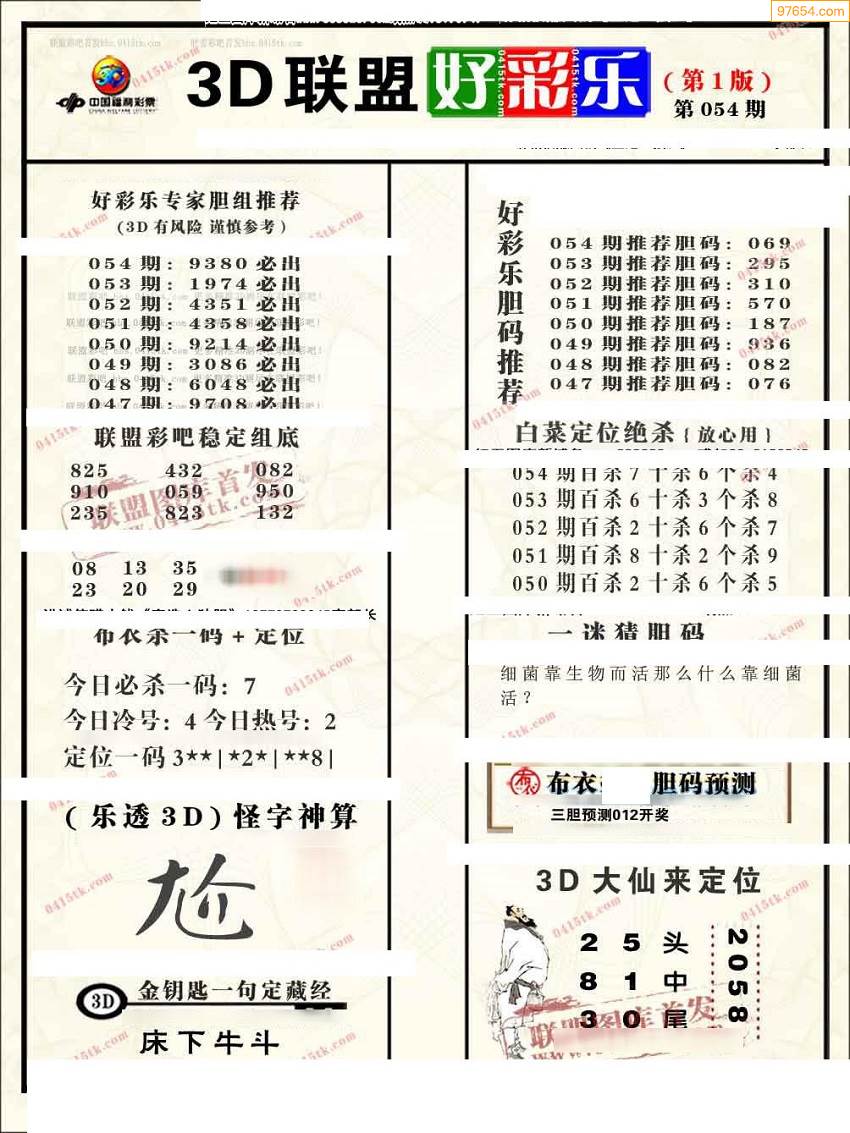 97654.com
联盟彩吧首发bbs.0415tk.com
中国福利彩票
CHINA WELFARE LOTTERY
3D联盟好彩乐
(第1版)
第054期
好彩乐专家胆组推荐
(3D有风险 谨慎参考)
054期: 9380必出
053期: 1974必出
052期: 4351必出
051期: 4358必出
050期: 9214必出
049期: 3086必出
048期: 6048必出
047期: 9708必出
联盟彩吧稳定组底
825 432 082
910 059 950
235 823 132
联盟图库首发
www.0415tk.com
08 13 35
23 20 29
布衣杀一码+定位
今日必杀一码: 7
今日冷号: 4 今日热号: 2
定位一码3**|*2*|**8|
(乐透3D)怪字神算
尬
3D 金钥匙一句定藏经
床下牛斗
好彩乐胆码推荐
054期推荐胆码: 069
053期推荐胆码: 295
052期推荐胆码: 310
051期推荐胆码: 570
050期推荐胆码: 187
049期推荐胆码: 936
048期推荐胆码: 082
047期推荐胆码: 076
白菜定位绝杀{放心用}
054期百杀7十杀6个杀4
053期百杀6十杀3个杀8
052期百杀2十杀6个杀7
051期百杀8十杀2个杀9
050期百杀2十杀6个杀5
一迷猜胆码
细菌靠生物而活那么什么靠细菌
活?
布衣 胆码预测
三胆预测012开奖
3D大仙来定位
2 5 头
8 1 中
3 0 尾
2058
联盟图库首发
0415tk.com